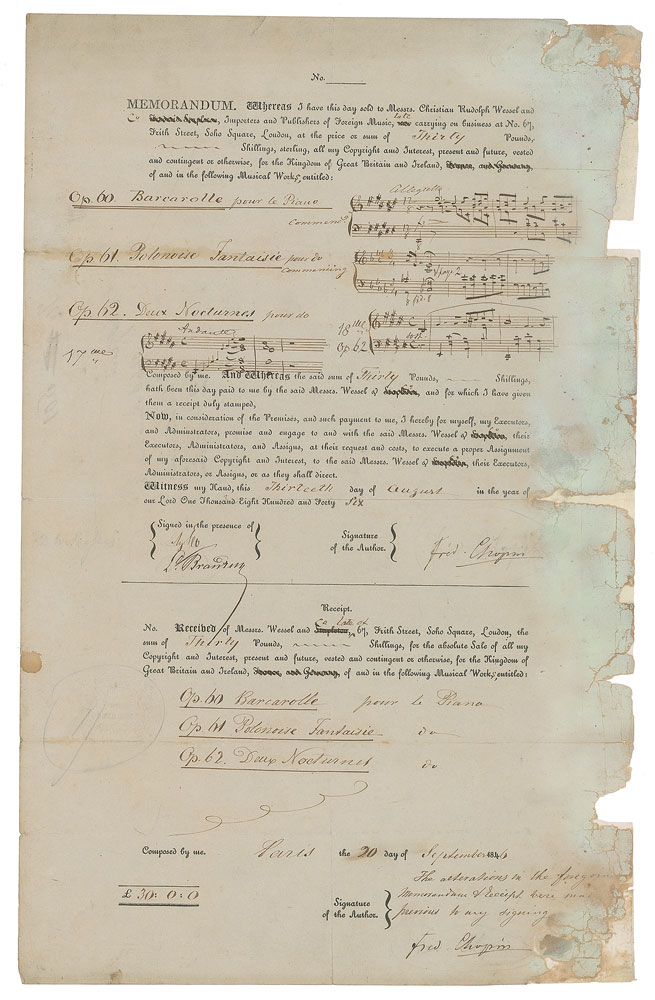 No.
MEMORANDUM. Whereas I have this day sold to Messrs. Christian Rudolph Wessel and
Co, Importers and Publishers of Foreign Music, late carrying on business at No. 67,
Frith Street, Soho Square, London, at the price or sum of Thirty Pounds,
Shillings, sterling, all my Copyright and Interest, present and future, vested
and contingent or otherwise, for the Kingdom of Great Britain and Ireland, France, and Germany,
of and in the following Musical Works, entitled:
Allegretto
Op. 60 Barcarolle pour le Piano
Op. 61. Polonoise Fantaisie pour do
commencing
Op. 62. Deux Nocturnes pour do
Andante
18me
Op 62
17me
Composed by me. And Whereas the said sum of Thirty Pounds, Shillings,
hath been this day paid to me by the said Messrs. Wessel & Stapleton, and for which I have given
them a receipt duly stamped,
Now, in consideration of the Premises, and such payment to me, I hereby for myself, my Executors,
and Administrators, promise and engage to and with the said Messrs. Wessel & Stapleton, their
Executors, Administrators, and Assigns, at their request and costs, to execute a proper Assignment
of my aforesaid Copyright and Interest, to the said Messrs. Wessel & Stapleton, their Executors,
Administrators, or Assigns, or as they shall direct.
Witness my Hand, this Thirteeth day of August in the year of
our Lord One Thousand Eight Hundred and Forty Six
Signed in the presence of
Signature
of the Author.
fréd. Chopin
Receipt.
Co late of
No. Received of Messrs. Wessel and Stapleton, 67, Frith Street, Soho Square, London, the
sum of Thirty Pounds, Shillings, for the absolute Sale of all my
Copyright and Interest, present and future, vested and contingent or otherwise, for the Kingdom of
Great Britain and Ireland, France, and Germany, of and in the following Musical Works, entitled:
Op. 60 Barcarolle pour le Piano
Op. 61 Polonoise Fantaisie do
Op. 62. Deux Nocturnes do
Composed by me. Paris the 20 day of September 1846
The alterations in the
Memorandum & Receipt were
previous to my signing
£ 30: 0: 0
Signature
of the Author.
fréd. Chopin